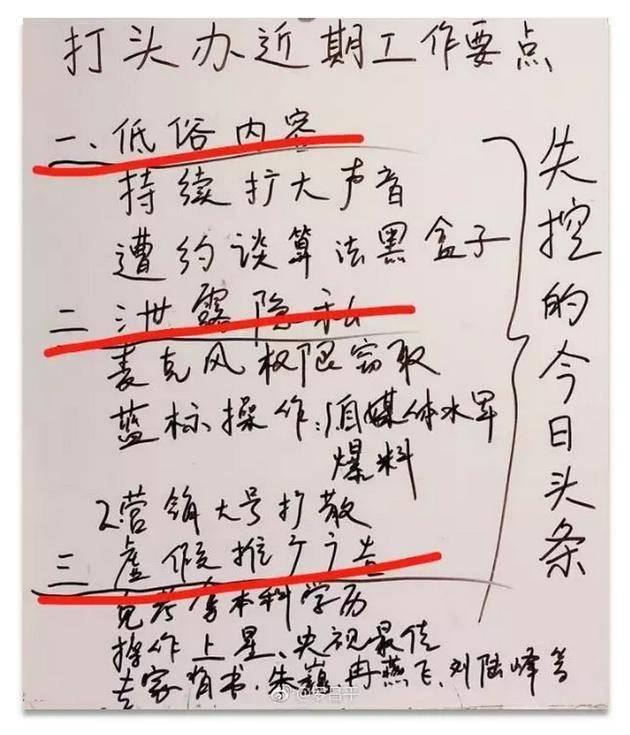 打头办近期工作要点
一、低俗内容
持续扩大声音
遭约谈算法黑盒子
二 泄露隐私
麦克风权限窃取
蓝标操作:1自媒体水军
爆料
2营销大号扩散
三 虚假推广广告
免考拿本科学历
操作上星、央视最佳
专家背书.朱巍.冉燕飞、刘陆峰等
失控的今日头条